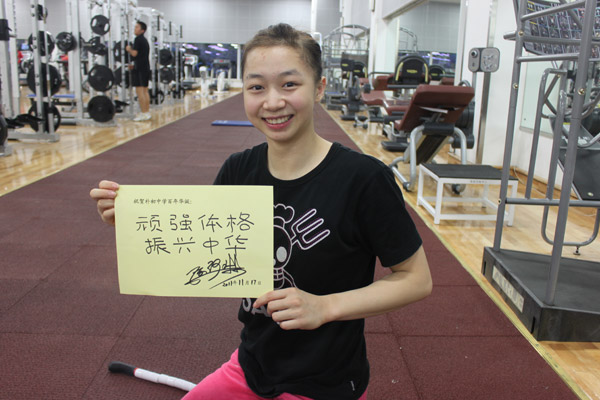 祝贺朴初中学百年华诞:
顽强体格
振兴中华
2011.11.17